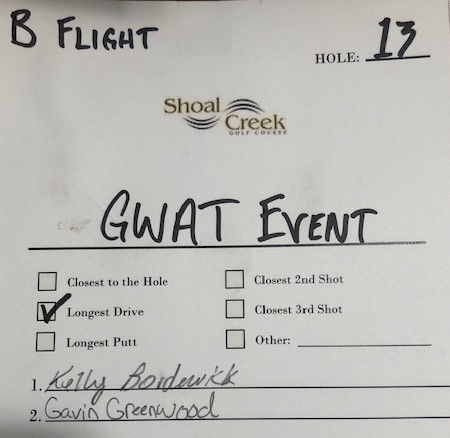 B FLIGHT
HOLE: 13
Shoal Creek
GOLF COURSE
GWAT EVENT
Closest to the Hole
Closest 2nd Shot
Longest Drive
Closest 3rd Shot
Longest Putt
Other:
1. Kelly Bordewick
2. Gavin Greenwood